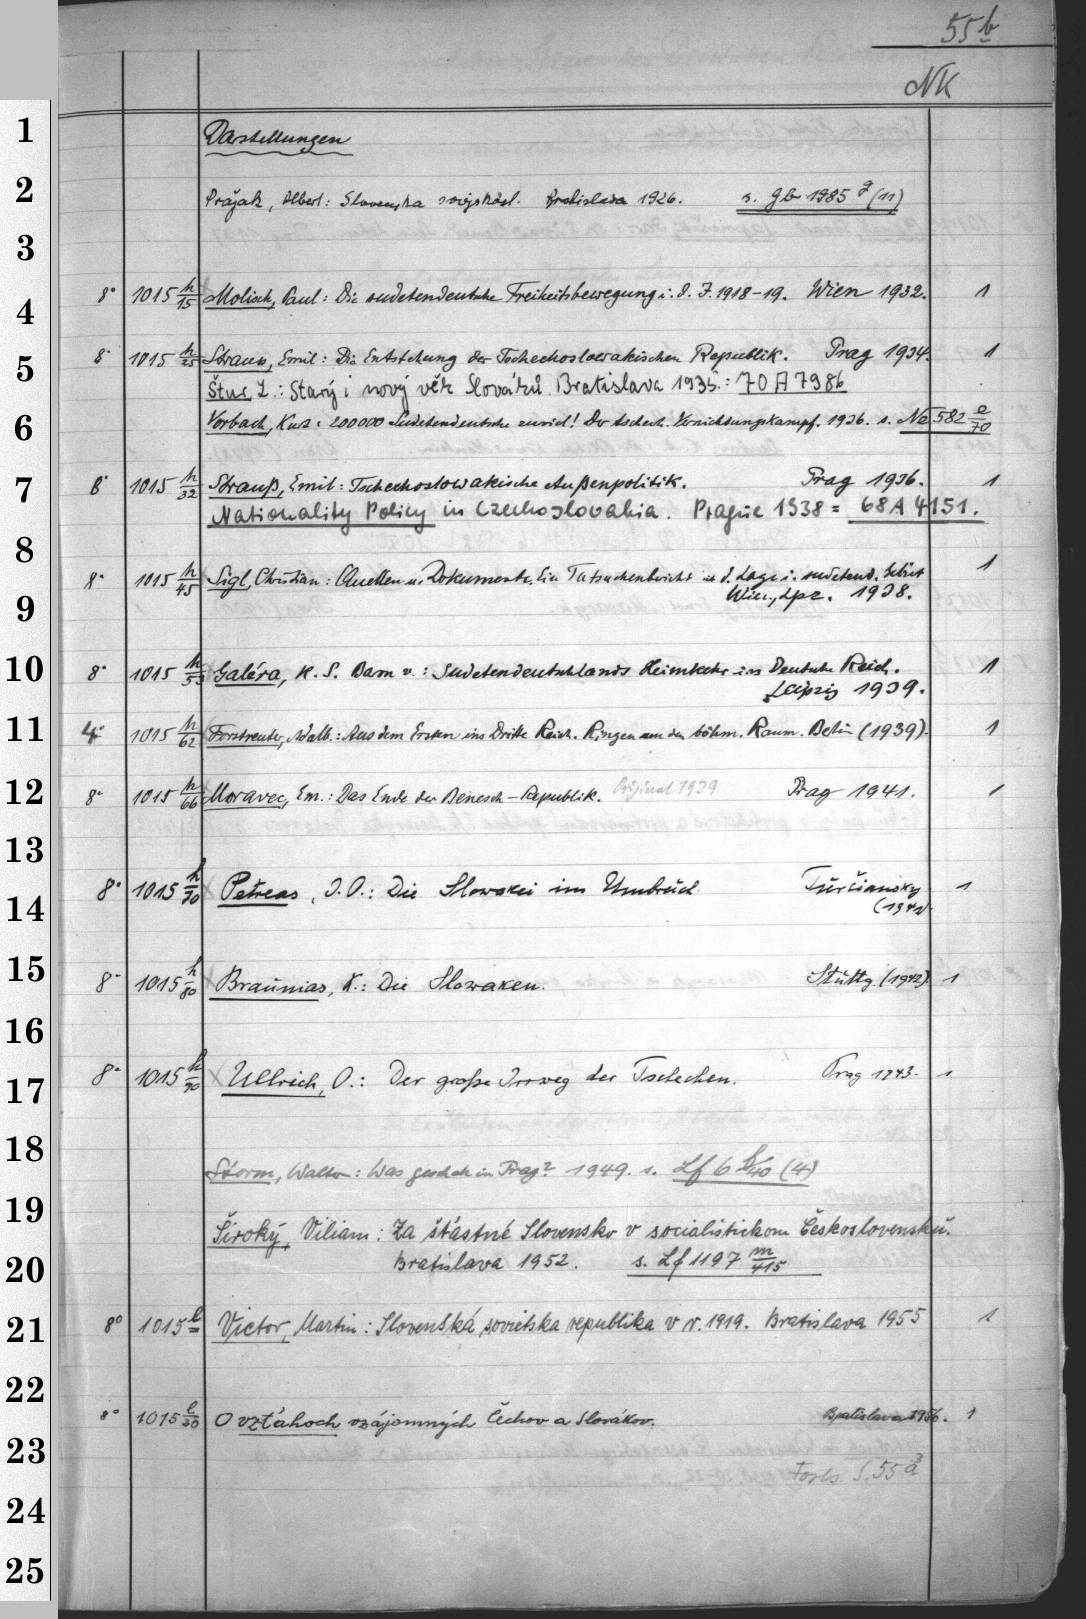 55b
NK
1
Darstellungen
2
Pražak, Albert: Slovenska svojskósť. Bratislava 1926. s. Gb 1985 g (11)
3
8° 1015 h/15 Molisch, Paul: Die sudetendeutsche Freiheitsbewegung i. d. J. 1918-19. Wien 1932. 1
4
8° 1015 h/25 Strauss, Emil: Die Entstehung der Tschechoslowakischen Republik. Prag 1934. 1
5
Štúr L.: Starý i nový věk Slováků. Bratislava 1935.: 70 A 7986
6
Vorbach, Kurt: 200000 Sudetendeutsche zuviel! Der tschech. Vernichtungskampf. 1936. s. Na 582 e/70
7
8° 1015 h/32 Strauß, Emil: Tschechoslowakische Außenpolitik. Prag 1936. 1
Nationality Policy in Czechoslovakia. Prague 1938 = 68 A 4151.
8
8° 1015 h/45 Sigl, Christian: Quellen u. Dokumente. Ein Tatsachenbericht üb d. Lage i. sudetend. Gebiet 1
Wien, Lpz. 1938.
9
10
8° 1015 h/53 Galéra, K. S. Bar. v.: Sudetendeutschlands Heimkehr ins Deutsche Reich. 1
Leipzig 1939.
11
4° 1015 h/62 Forstreuter, Adalb.: Aus dem Ersten ins Dritte Reich. Ringen um den böhm. Raum. Berlin (1939). 1
12
8° 1015 h/66 Moravec, Em.: Das Ende der Benesch-Republik. Original 1939 Prag 1941. 1
13
8° 1015 h/70 Petreas, J. O.: Die Slowakei im Umbruch Turčiansky 1
14
(1941)
15
8° 1015 h/80 Braunias, K.: Die Slowaken. Stuttg. (1942) 1
16
17
8° 1015 h/90 Ullrich, O.: Der große Irrweg der Tschechen. Prag 1943. 1
18
Storm, Walter: Was geschah in Prag? 1949. s. Lf 6 b/40 (4)
19
Široký, Viliam: Za šťastné Slovensko v socialistickom Československu.
20
Bratislava 1952. s. Lf 1197 m/415
21
8° 1015 l Victor, Martin: Slovenská sovietska republika v r. 1919. Bratislava 1955 1
22
8° 1015 l/20 O vzťahoch vzájomných Čechov a Slovákov. Bratislava 1956. 1
23
Forts. S. 55 a
24
25